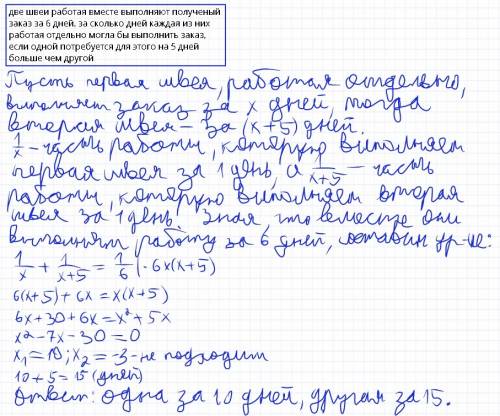 две швеи работая вместе выполняют полученый
заказ за 6 дней. за сколько дней каждая из них
работая отдельно могла бы выполнить заказ,
если одной потребуется для этого на 5 дней
больше чем другой
Пусть первая швея, работая отдельно,
выполняет заказ за x дней, тогда
вторая швея - за (x+5) дней.
1/x - часть работы, которую выполняет
первая швея за 1 день, а 1/(x+5) - часть
работы, которую выполняет вторая
швея за 1 день. Зная, что вместе они
выполнят работу за 6 дней, составим ур-ие:
1/x + 1/(x+5) = 1/6 | · 6x(x+5)
6(x+5) + 6x = x(x+5)
6x + 30 + 6x = x² + 5x
x² - 7x - 30 = 0
x₁ = 10; x₂ = -3 - не подходит
10 + 5 = 15 (дней)
Ответ: одна за 10 дней, другая за 15.